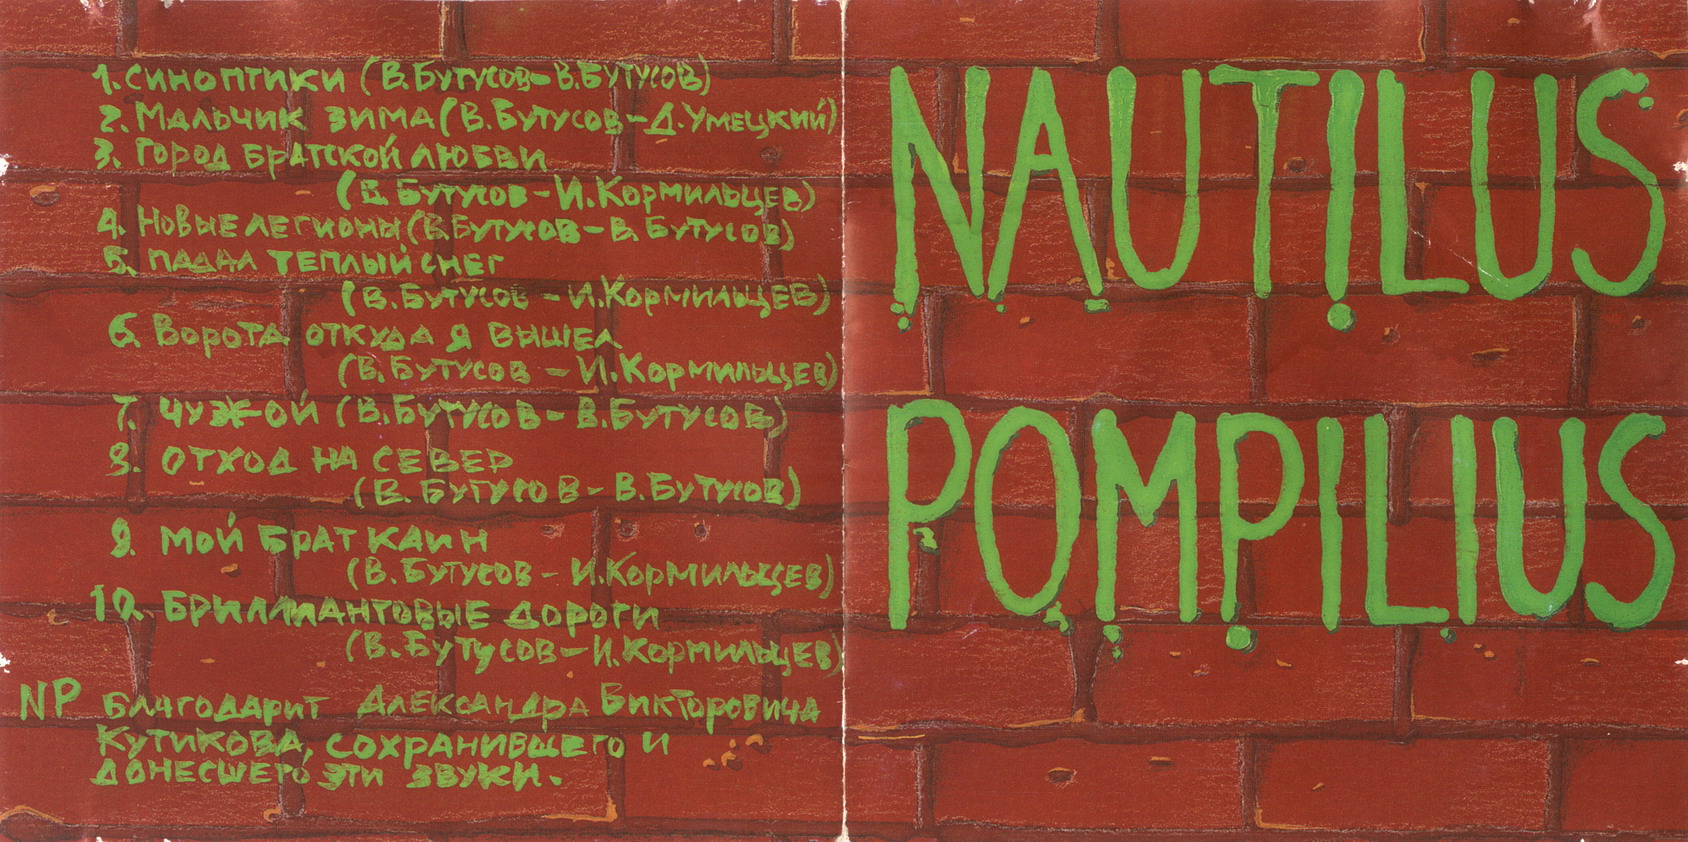 1. Синоптики (В. Бутусов - В. Бутусов)
2. Мальчик зима (В. Бутусов - Д. Умецкий)
3. Город братской любви
(В. Бутусов - И. Кормильцев)
4. Новые легионы (В. Бутусов - В. Бутусов)
5. Падал теплый снег
(В. Бутусов - И. Кормильцев)
6. Ворота откуда я вышел
(В. Бутусов - И. Кормильцев)
7. Чужой (В. Бутусов - В. Бутусов)
8. Отход на север
(В. Бутусов - В. Бутусов)
9. Мой брат Каин
(В. Бутусов - И. Кормильцев)
10. Бриллиантовые дороги
(В. Бутусов - И. Кормильцев)
NP Благодарит Александра Викторовича
Кутикова, сохранившего и
донесшего эти звуки.
NAUTILUS
POMPILIUS